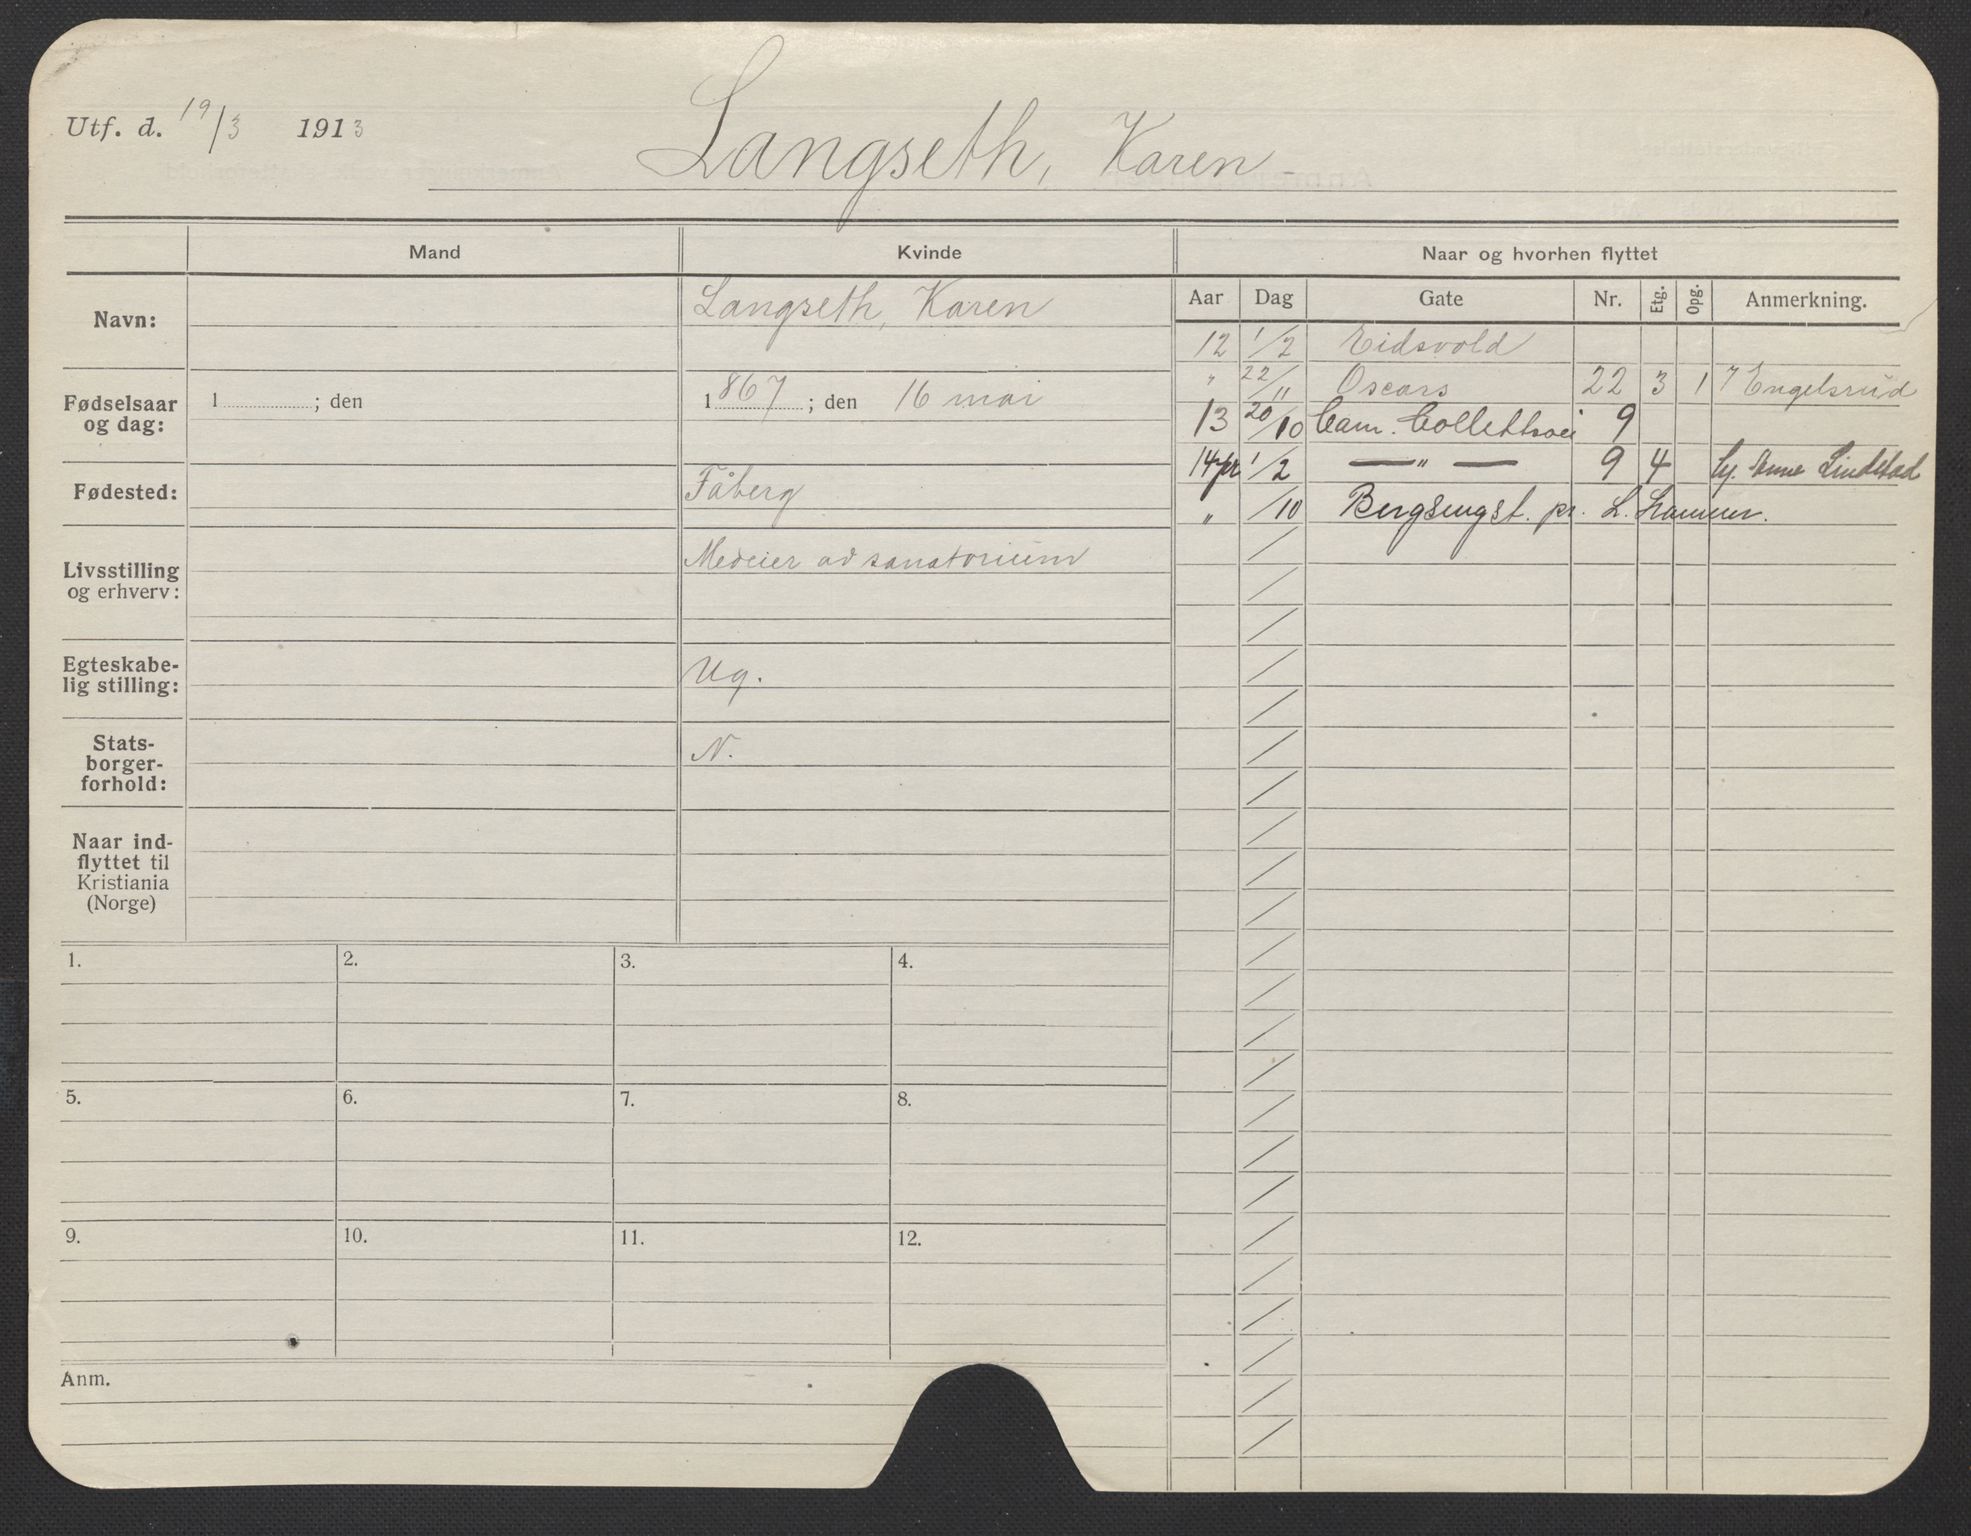 Utf. d. 19/3 1913
Langseth, Karen
Mand Kvinde Naar og hvorhen flyttet
Aar Dag Gate Nr. Etg. Opg. Anmerkning.
Navn: Langseth, Karen
Fødselsaar
og dag: 1 ; den 1867 ; den 16 mai
Fødested: Fåberg
Livsstilling
og erhverv: Medeier av sanatorium
Egteskabe-
lig stilling: Ug.
Stats-
borger-
forhold: N.
Naar ind-
flyttet til
Kristiania
(Norge)
12 1/2 Eidsvold
" 22/" Oscars 22 3 1 Engelsrud
13 20/10 Cam. Collettsvei 9
14 pr 1/2 — " — 9 4 Anne Lindstad
" /10 pr. L. Hammer.
1. 2. 3. 4.
5. 6. 7. 8.
9. 10. 11. 12.
Anm.